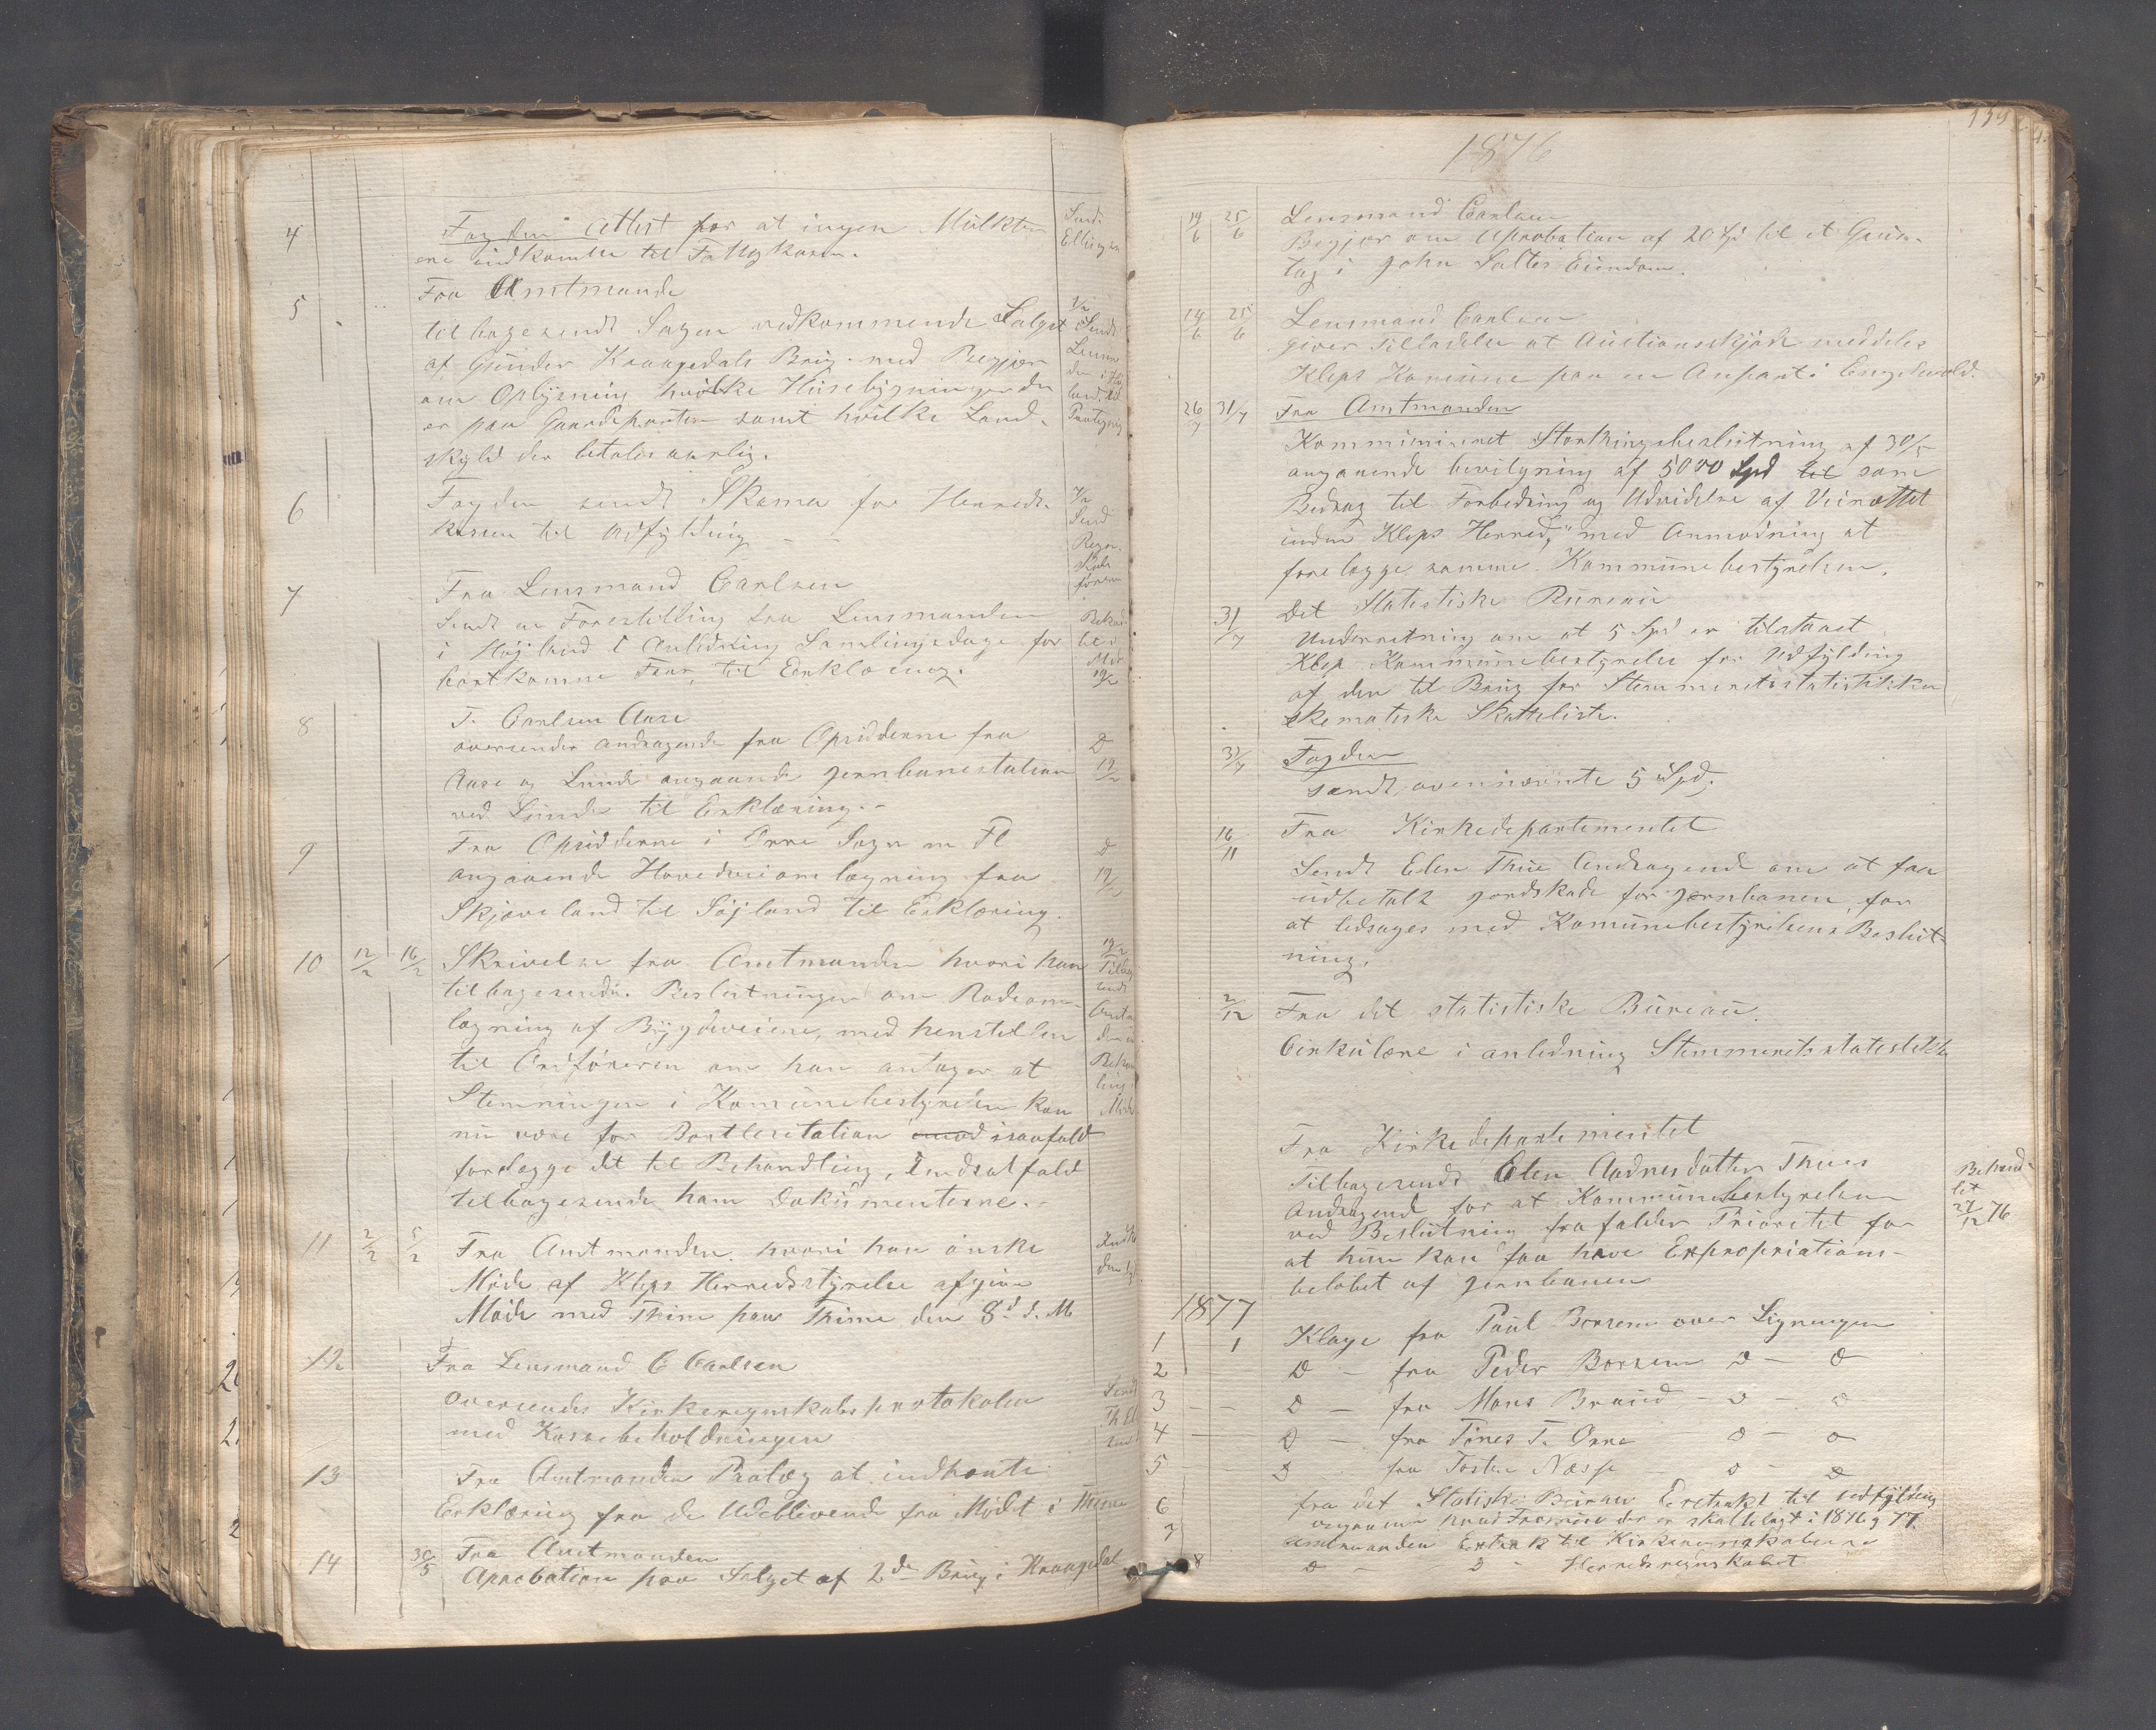 4 Fogden Attest for at ingen Mulkter
ere indkomne til Fattigkasen.
5 Fra Amtmande
tilbagesendt Sagen vedkommende Salget
af Gunder Kraagedals Brug med Begjær
om Oplysning hvilke Husebygninger der
er paa Gaardeparten samt hvilke Land-
skyld der betales aarlig.
6 Fogden sendt Skema for Herreds-
kassen til Udfylding
7 Fra Lensmand Carlsen
Sendt en Forestilling fra Lensmanden
i Højland i Anledning Samlingsdage for
bortkomne Faar, til Erklæring.
8 T. Carlsen Aase
oversender andragende fra Opsidderne fra
Aase og Lunde angaaende Jernbanestation
ved Lunde til Erklæring.-
9 Fra Opsidderne i Orre Sogn m Fl
angaaende Hovedveiomlægning fra
Skjæveland til Søjland til Erklæring.
10 12/2 16/2 Skrivelse fra Amtmanden hvori han
tilbagesendt. Beslutningen om Rodeom-
lægning af Bygdeveiene, med henstillen
til Ordføreren om han antager at
Stemningen i Komunebestyrelsen kan
nu være for Bortlicitation isaafald
forelægge det til Behandling, Indsatfald
tilbagesende ham Dokumenterne.-
11 2/2 5/2 Fra Amtmanden hvori han ønske
Møde af Kleps Herredsstyrelse afgive
Møde med Thime paa Thime den 8d d. M
12 Fra Lensmand C Carlsen
oversendes Kirkeregnskabsprotokolen
med Kassebeholdningen
13 Fra Amtmanden Paalæg at indhente
Erklæring fra de Udeblivende fra Mødet i Thime
14 30/5 Fra Amtmanden
Aprobation paa Salget af 2de Brug i Kraagedal
1876
139
19/6 25/6 Lensmand Carlsen
Begjær om Aprobation af 20 Spd til et Grus-
tag i John Saltes Eiendom.
19/6 25/6 Lensmand Carlsen
giver Tilladelse at Auctionsskjøde meddeles
Kleps Komune paa en Anpart i Engelsvold.
26/7 31/7 Fra Amtmanden
Kommuniceret Storthingsbeslutning af 30/5
angaaende bevilgning af 5000 Spd til som
Bidrag til Forbedring og Udvidelse af Veinættet
inden Kleps Herred," med Anmodning at
forelægge samme Kommunebestyrelsen.
31/7 Det Statistiske Bureau
Underretning om at 5 Spd er tilstaaet
Klep Kommunebestyrelse for Udfylding
af den til Brug for Stemmeretsstatistikken
skematiske Skatteliste.
31/7 Fogden
sendt ovennævnte 5 Spd.
16/11 Fra Kirkedepartementet
Sendt Elen Thue Andragende om at faa
udbetalt Jordskade for Jernbanen, for
at ledsages med Komunebestyrelsens Beslut-
ning.
2/12 Fra det statistiske Bureau.
Cirkulære i anledning Stemmeretsstatistikk
Fra Kirkedepartementet
Tilbagesendt Elen Aadnesdatter Thues
Andragend for at Kommunebestyrelsen
ved Beslutning frafalder Prioritet for
at hun kan faa hæve Expropriations-
beløbet af Jernbanen
Behand-
let
27/12 76
1877
1 1 Klage fra Paul Borsem over Ligningen
2 D - fra Peder Borsem D - D
3 - - D - fra Mons Braud - D - D
4 - D - fra Tønes T. Orre - D - D
5 - D - fra Tosten Næsse - D - D
6 fra det Statiske Bureau Exstrakt til udfylding
angaaende hvad Formue der er skattelagt i 1876 g 77.
7 Amtmanden Extrakt til Kirkeregnskaberne
8 D - D - Herredsregnskabet